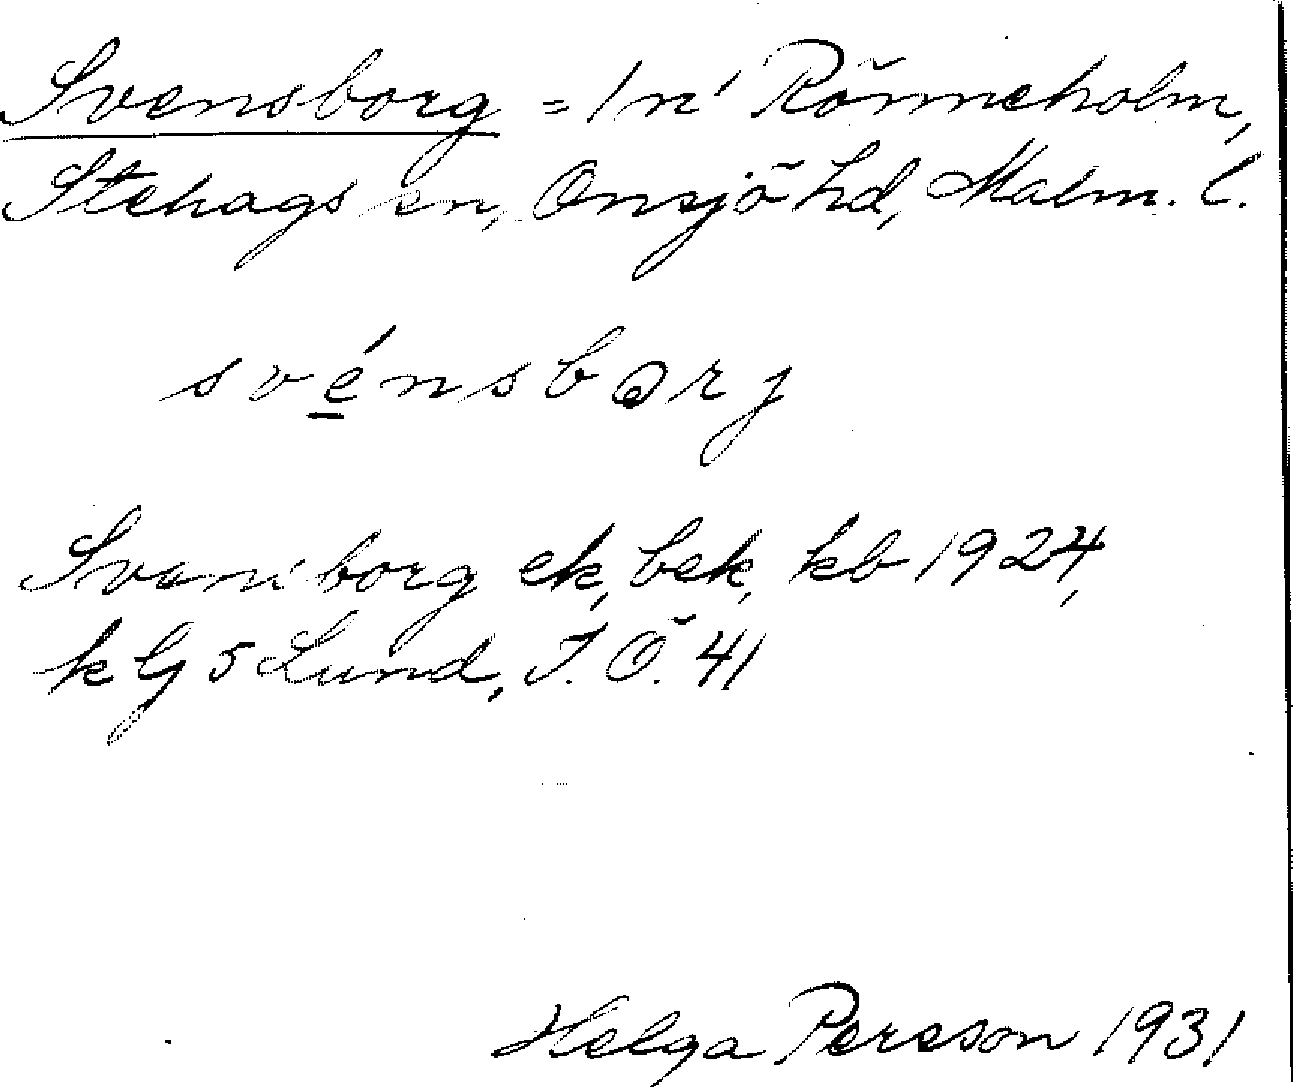 Svensborg = 1 n' Rönneholm,
Stehags sn, Onsjö hd, Malm. l.
svénsbɷrj
Svensborg ek, bek, kb 1924,
k G 5 Lund, J. Ö. 41
Helga Persson 1931